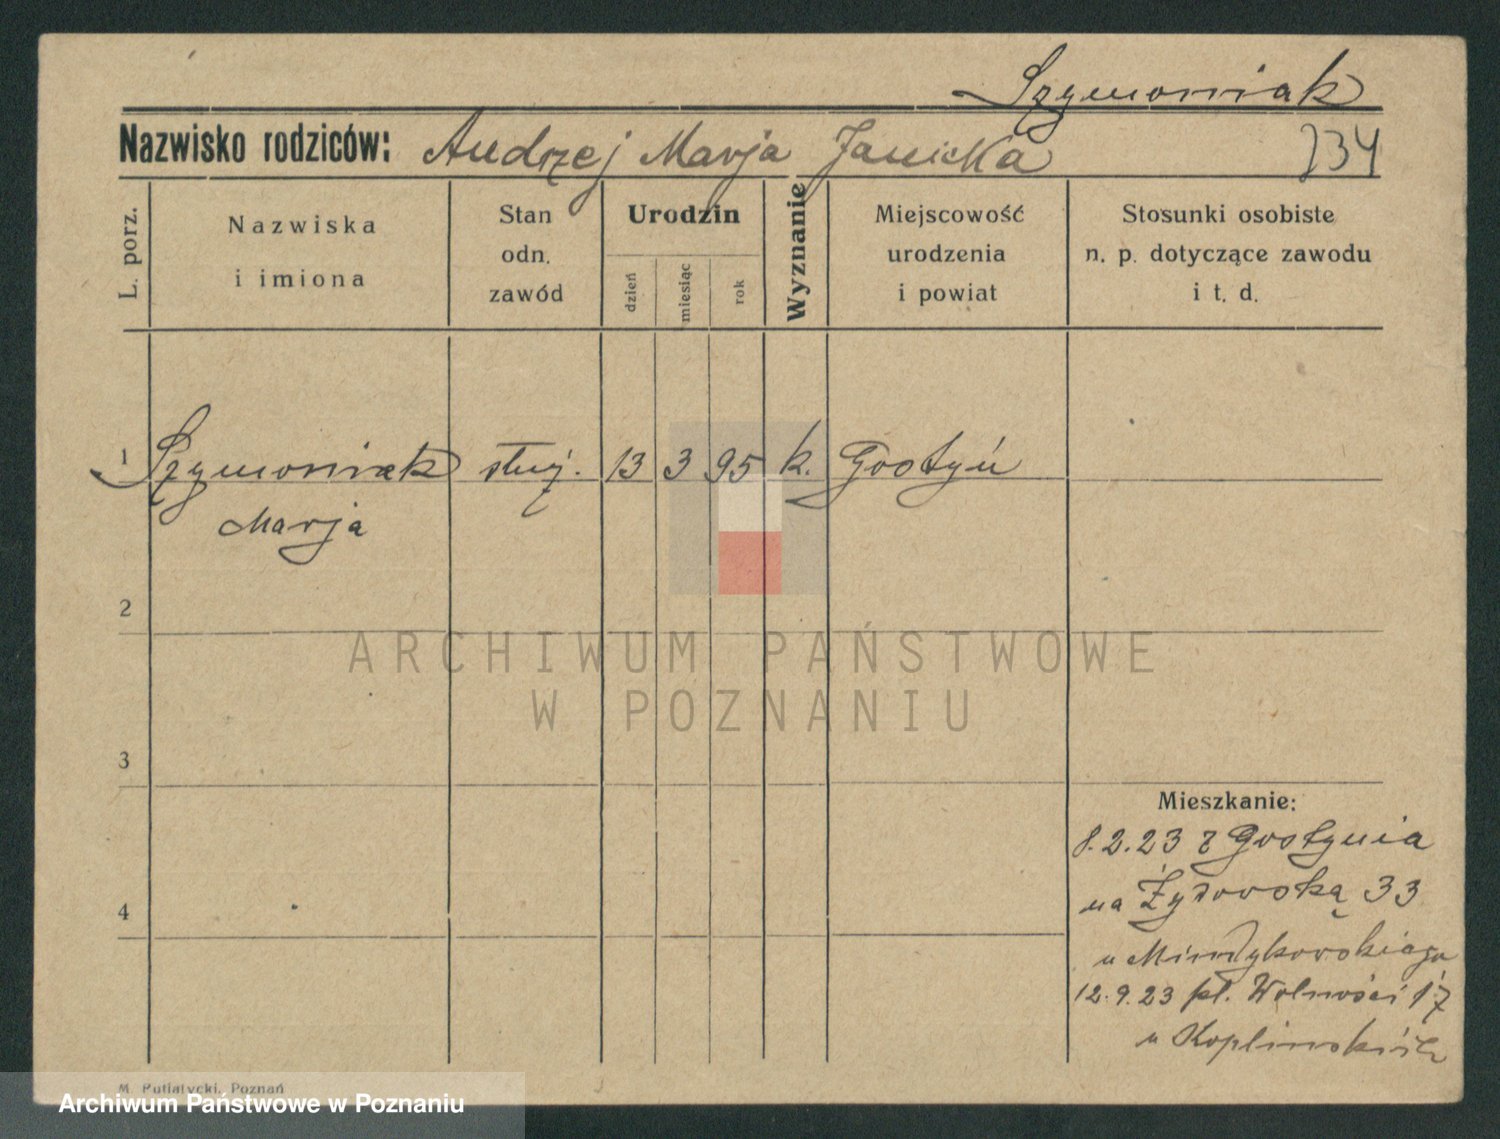 Szymoniak
Nazwisko rodziców: Andrzej Marja Janicka
234
L. porz.
Nazwiska
i imiona
Stan
odn.
zawód
Urodzin
dzień
miesiąc
rok
Wyznanie
Miejscowość
urodzenia
i powiat
Stosunki osobiste
n. p. dotyczące zawodu
i t. d.
1 Szymoniak służ. 13 3 95 k. Gostyń
Marja
2
3
4
Mieszkanie:
8.2.23 z Gostynia
na Żydowską 33
u
12.9.23 pl. Wolności 17
u Koplinskich
M. Putiatycki, Poznań
ARCHIWUM PAŃSTWOWE
W POZNANIU
Archiwum Państwowe w Poznaniu